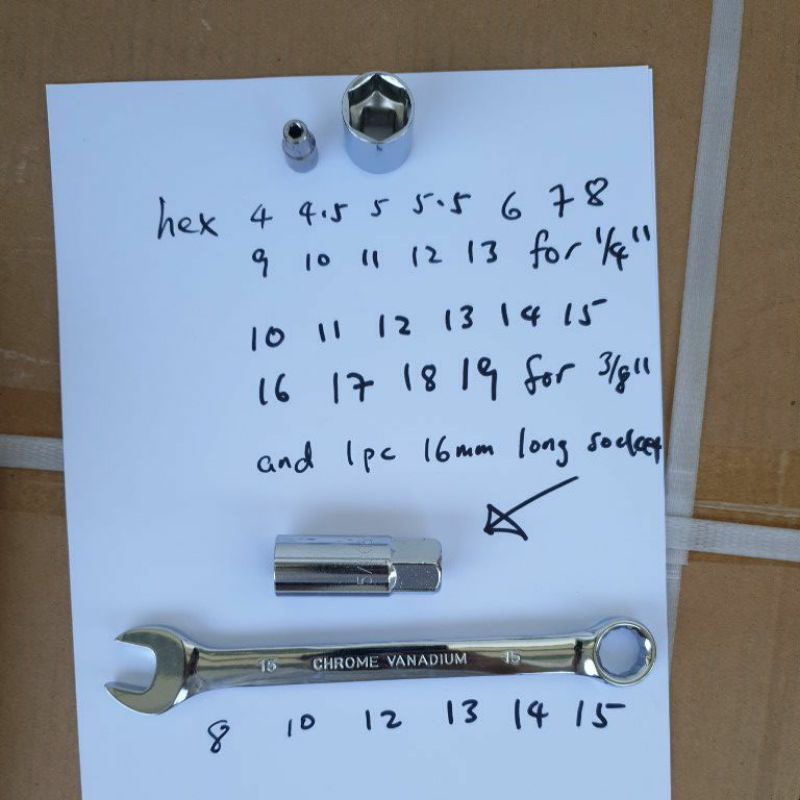 hex 4 4.5 5 5.5 6 7 8
9 10 11 12 13 for 1/4"
10 11 12 13 14 15
16 17 18 19 for 3/8"
and 1pc 16mm long socket
15 CHROME VANADIUM 15
8 10 12 13 14 15